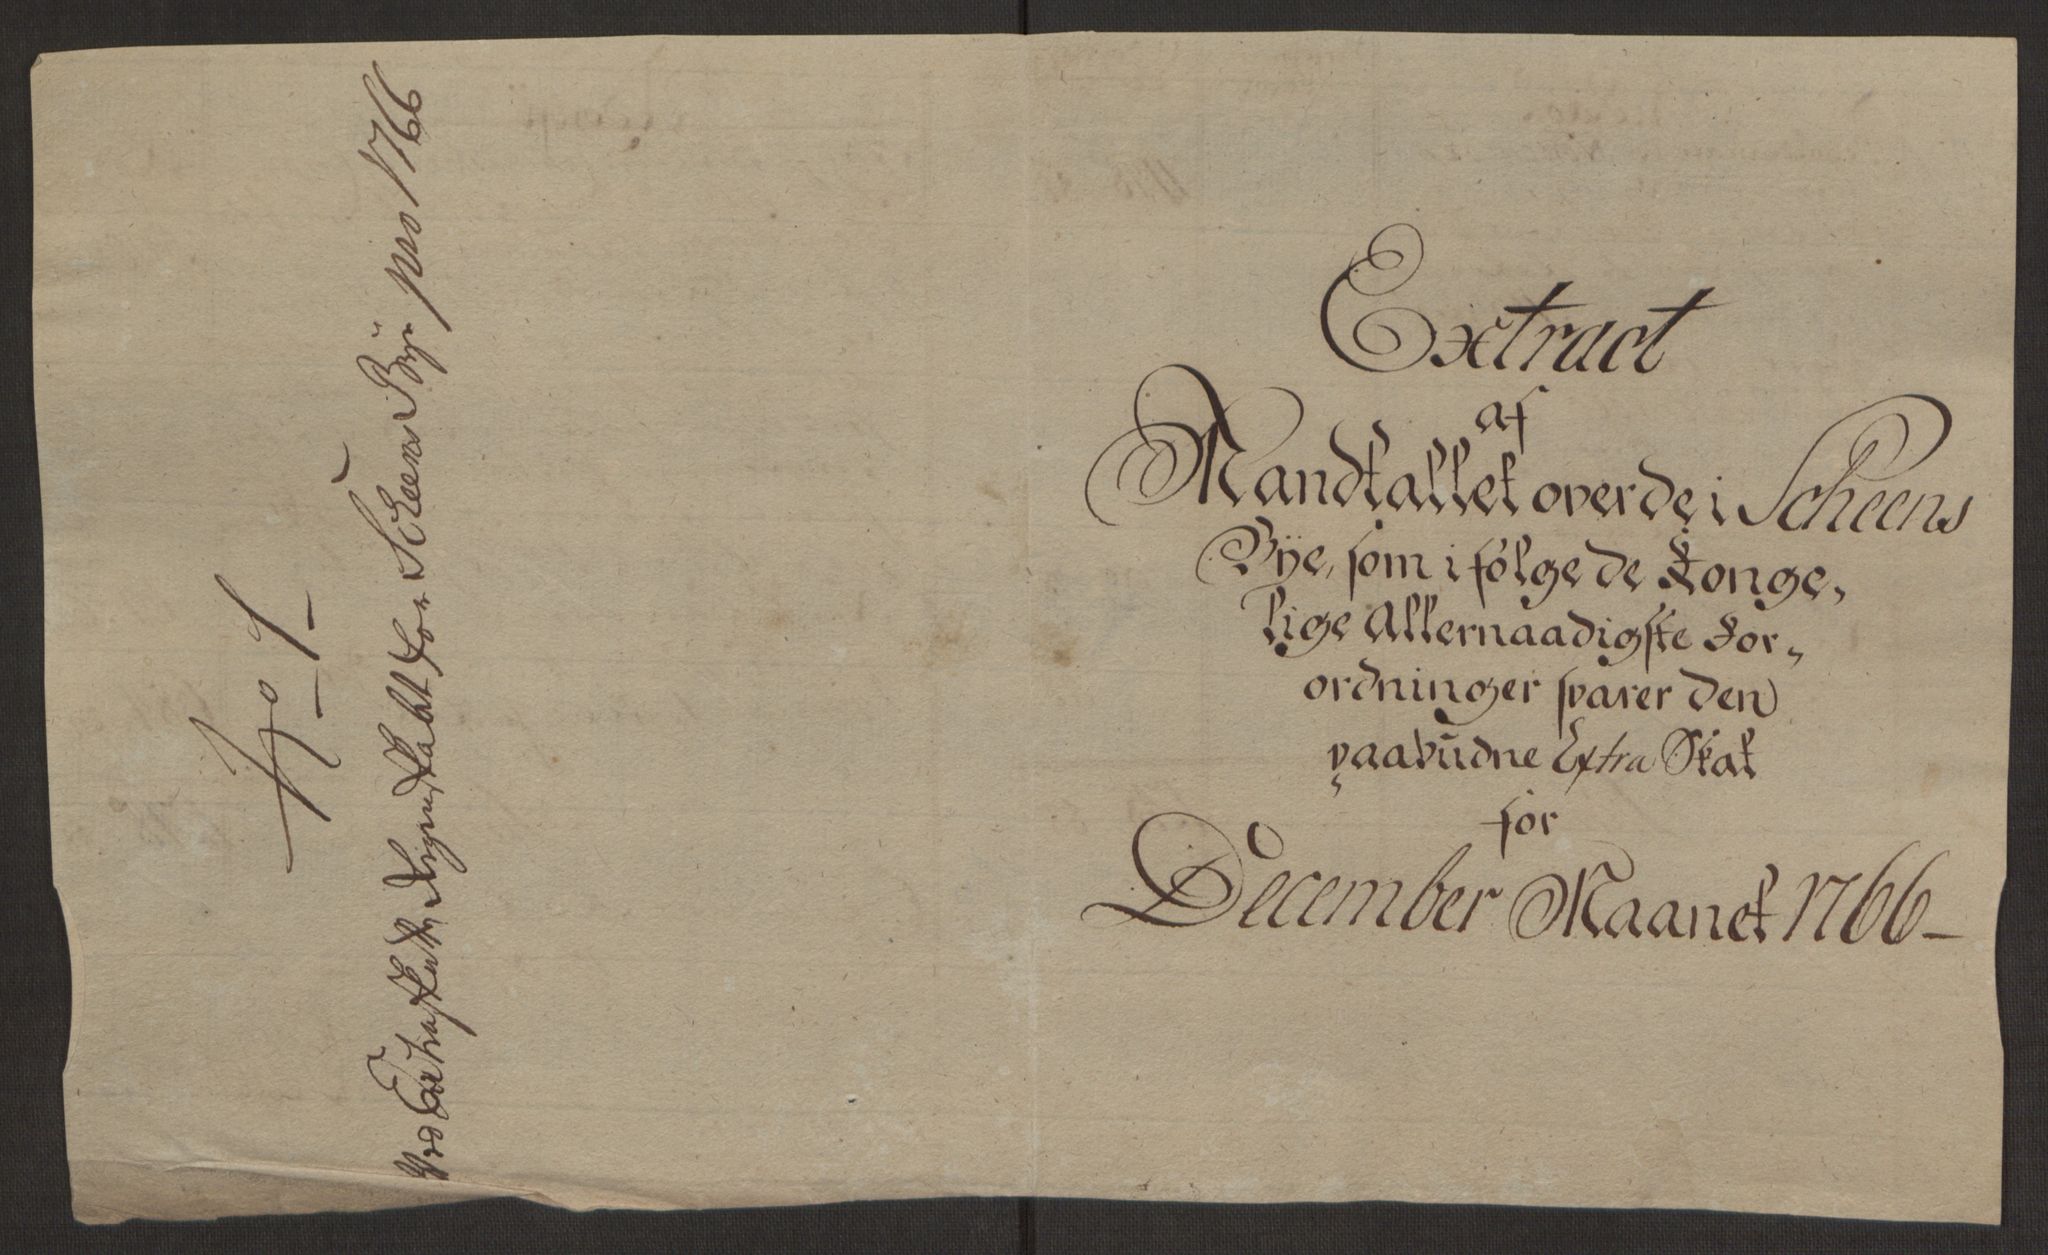 No 1
Ved Extraskatte Regnskabet for Scheens Bye pro 1766
Extract
af
Mandtallet over de i Scheens
Bÿe, som i følge de Konge,
lige Allernaadigste For,
ordninger svarer den
paabudne Extra Skat
for
December Maanet 1766